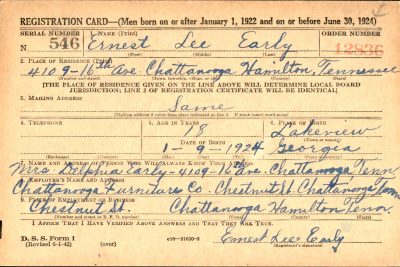 REGISTRATION CARD—(Men born on or after January 1, 1922 and on or before June 30, 1924)
SERIAL NUMBER 1. NAME (Print) ORDER NUMBER
N 546 Ernest Lee Early 12836
(First) (Middle) (Last)
2. PLACE OF RESIDENCE (Print)
4109-16th Ave. Chattanooga Hamilton, Tennessee
[THE PLACE OF RESIDENCE GIVEN ON THE LINE ABOVE WILL DETERMINE LOCAL BOARD
JURISDICTION; LINE 2 OF REGISTRATION CERTIFICATE WILL BE IDENTICAL]
3. MAILING ADDRESS
Same
[Mailing address if other than place indicated on line 2. If same insert word same]
4. TELEPHONE 5. AGE IN YEARS 6. PLACE OF BIRTH
18 Lakeview
DATE OF BIRTH (Town or county)
1-9-1924 Georgia
(Exchange) (Number) (Mo.) (Day) (Yr.) (State or country)
7. NAME AND ADDRESS OF PERSON WHO WILL ALWAYS KNOW YOUR ADDRESS
Mrs Delphia Early-4109-16 Ave. Chattanooga Tenn.
8. EMPLOYER'S NAME AND ADDRESS
Chattanooga Furniture Co. Chestnut St. Chattanooga Tenn
9. PLACE OF EMPLOYMENT OR BUSINESS
Chestnut St. Chattanooga Hamilton Tenn.
(Number and street or R. F. D. number) (Town) (County) (State)
I AFFIRM THAT I HAVE VERIFIED ABOVE ANSWERS AND THAT THEY ARE TRUE.
D. S. S. Form 1
(Revised 6-1-42) (over) 16—21630-2 Ernest Lee Early
(Registrant's signature)